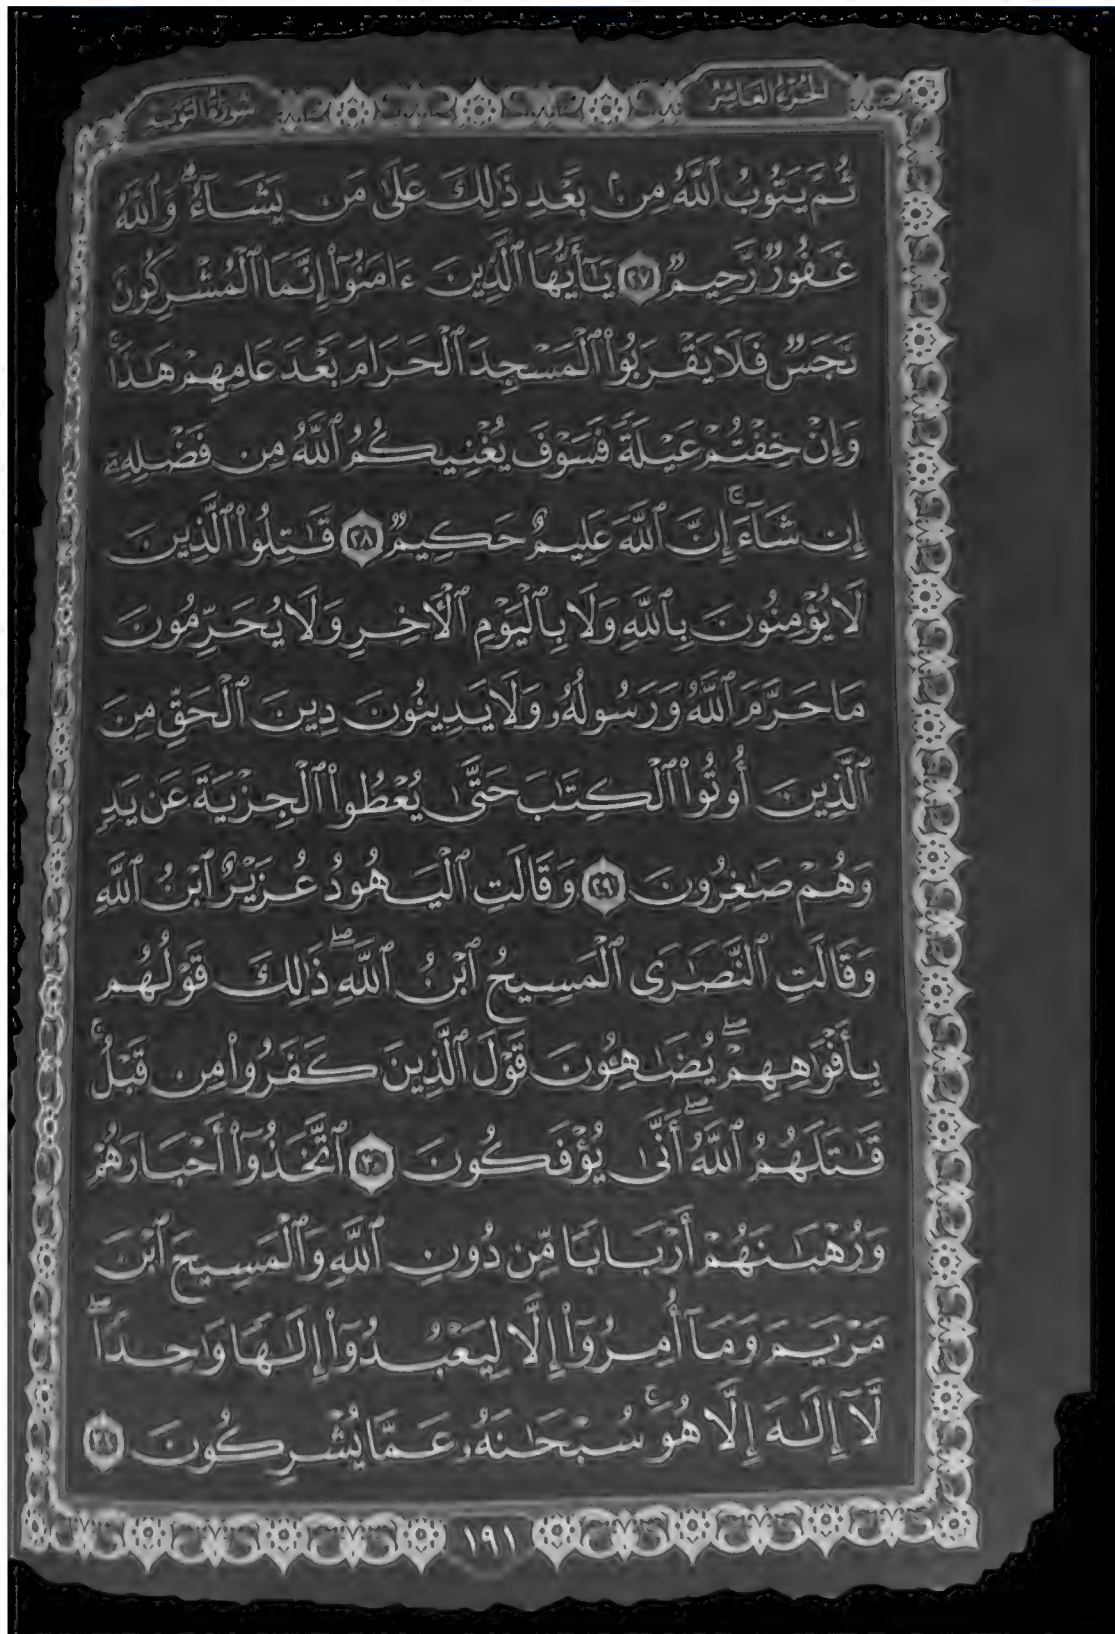 الجزء العاشر
سورة التوبة
ثُمَّ يَتُوبُ ٱللَّهُ مِنۢ بَعْدِ ذَٰلِكَ عَلَىٰ مَن يَشَآءُۗ وَٱللَّهُ
غَفُورٌ رَّحِيمٌ ٢٧ يَـٰٓأَيُّهَا ٱلَّذِينَ ءَامَنُوٓا۟ إِنَّمَا ٱلْمُشْرِكُونَ
نَجَسٌ فَلَا يَقْرَبُوا۟ ٱلْمَسْجِدَ ٱلْحَرَامَ بَعْدَ عَامِهِمْ هَـٰذَاۚ
وَإِنْ خِفْتُمْ عَيْلَةً فَسَوْفَ يُغْنِيكُمُ ٱللَّهُ مِن فَضْلِهِۦٓ
إِن شَآءَۚ إِنَّ ٱللَّهَ عَلِيمٌ حَكِيمٌ ٢٨ قَـٰتِلُوا۟ ٱلَّذِينَ
لَا يُؤْمِنُونَ بِٱللَّهِ وَلَا بِٱلْيَوْمِ ٱلْـَٔاخِرِ وَلَا يُحَرِّمُونَ
مَا حَرَّمَ ٱللَّهُ وَرَسُولُهُۥ وَلَا يَدِينُونَ دِينَ ٱلْحَقِّ مِنَ
ٱلَّذِينَ أُوتُوا۟ ٱلْكِتَـٰبَ حَتَّىٰ يُعْطُوا۟ ٱلْجِزْيَةَ عَن يَدٍ
وَهُمْ صَـٰغِرُونَ ٢٩ وَقَالَتِ ٱلْيَهُودُ عُزَيْرٌ ٱبْنُ ٱللَّهِ
وَقَالَتِ ٱلنَّصَـٰرَى ٱلْمَسِيحُ ٱبْنُ ٱللَّهِۖ ذَٰلِكَ قَوْلُهُم
بِأَفْوَٰهِهِمْۖ يُضَـٰهِـُٔونَ قَوْلَ ٱلَّذِينَ كَفَرُوا۟ مِن قَبْلُۚ
قَـٰتَلَهُمُ ٱللَّهُۖ أَنَّىٰ يُؤْفَكُونَ ٣٠ ٱتَّخَذُوٓا۟ أَحْبَارَهُمْ
وَرُهْبَـٰنَهُمْ أَرْبَابًا مِّن دُونِ ٱللَّهِ وَٱلْمَسِيحَ ٱبْنَ
مَرْيَمَ وَمَآ أُمِرُوٓا۟ إِلَّا لِيَعْبُدُوٓا۟ إِلَـٰهًا وَٰحِدًاۖ
لَّآ إِلَـٰهَ إِلَّا هُوَۚ سُبْحَـٰنَهُۥ عَمَّا يُشْرِكُونَ
١٩١